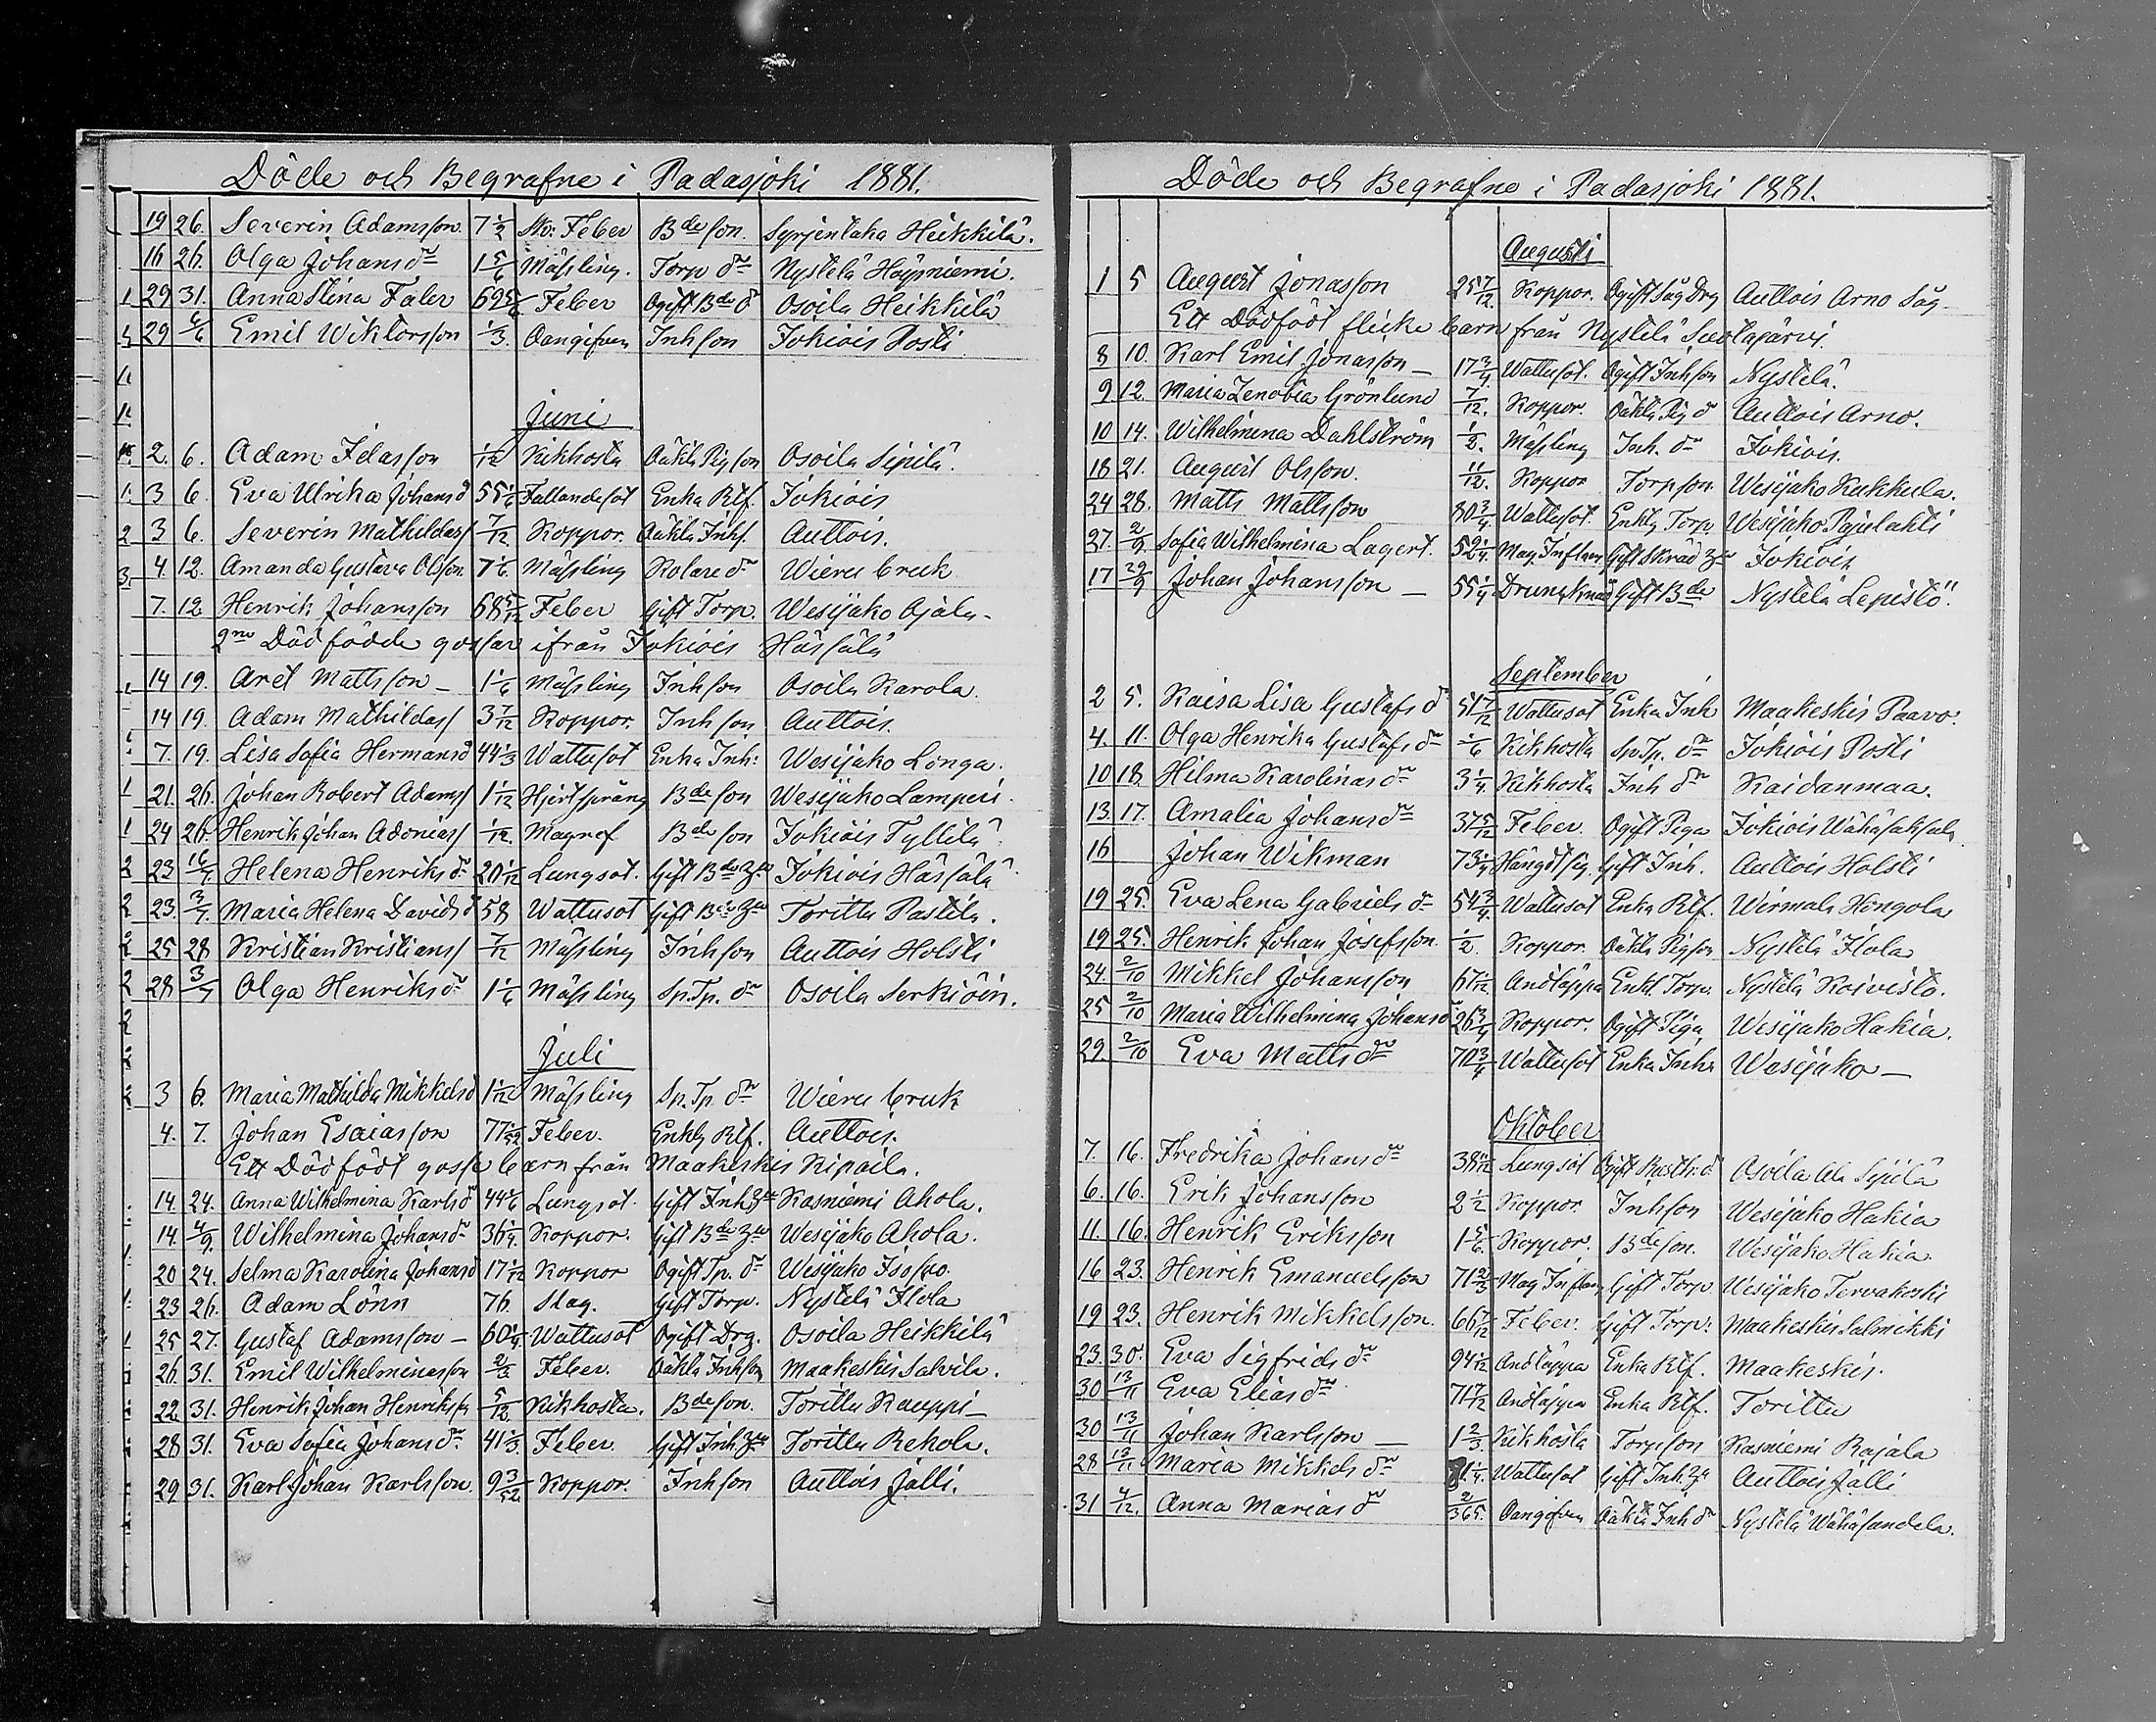 Döde och Begrafne i Padasjoki 1881.
19 26. Severin Adamsson. 7 1/2 Feber Bde son. Syrjentaka Heikkilä.
16 26. Olga Johans dr 1 5/6 Mässling. Torp dr Nystelä Höysniemi.
29 31. Anna Stina Faler 69 5/6 Feber Ogift Bde d Osoila Heikkilä
29 6/6 Emil Wiktorsson 1/3. Oangifven Inhson Jokiois Posti
Juni
2. 6. Adam Idasson 1/12 Kikhosta Oäkta Pigson Osoila Sipilä.
3 6 Eva Ulrika Johans d 55 1/6 Fallandesot Enka Rtf. Jokiois
3 6. Severin Mathildas/ 7/12 Koppor. Oäkta Inhs. Auttois.
4. 12. Amanda Gustava Olsson 7 1/6 Mässling Kolare dr Wieru bruk
7. 12 Henrik Johansson 68 5/12 Feber Gift Torp. Wesijako Ojala.
2ne Dödfödde gossar ifrån Jokiois Hässälä
14 19. Axel Mattsson 1 1/6 Mässling Inhson Osoila Karola.
14 19. Adam Mathildas/ 3 7/12 Koppor. Inhson Auttois.
7. 19. Lisa Sofia Hermans d 44 1/3 Wattusot Enka Inh: Wesijako Longa.
21. 26. Johan Robert Adams/ 1 1/12 Hjertsprång Bde son Wesijako Lamperi.
24 26. Henrik Johan Adonias/ 1/12. Magref Bde son Jokiois Tyllilä
23 16/7 Helena Henriks dr 20 1/12 Lungsot. Gift Bde Hu Jokiois Hässälä
23. 3/7. Maria Helena Davids d 58 Wattusot Gift Bde Hu Toritta Pastila.
25 28 Kristian Kristians/ 7/12 Mässling Inhson Auttois Holsti
28 3/7 Olga Henriks dr 1 1/6 Mässling Sp.Tp. dr Osoila Serkiöin.
Juli
3 6. Maria Mathilda Mikkels d 1 1/12 Mässling Sp. Tp. dr Wieru bruk
4. 7. Johan Esaiasson 77 1/52 Feber. Enkl Rtf. Auttois.
Ett Dödfödt gosse barn från Maakeskis Kipaila.
14. 24. Anna Wilhelmina Karls d 44 5/6 Lungsot. Gift Inh Hu Kasniemi Ahola.
14. 4/9. Wilhelmina Johans dr 36 1/4. Koppor. Gift Bde Hu Wesijako Ahola.
20 24. Selma Karolina Johans d 17 1/12 Koppor Ogift Tp. dr Wesijako Isoso.
23 26. Adam Lönn 76. Slag. Gift Torp. Nystelä Ilola
25 27. Gustaf Adamsson 60 1/4. Wattusot Ogift Drg. Osoila Heikkilä
26 31. Emil Wilhelminasson 2/3 Feber. Oäkta Inhson Maakeskis Salvila.
22 31. Henrik Johan Henriks/n 5/12 Kikhosta. Bdeson. Toritta Kauppi
28 31. Eva Sofia Johans dr. 41 1/3. Feber. Gift Inh. Hu Toritta Rekola.
29 31. Karl Johan Karlsson. 9 3/52 Koppor. Inhson Auttois Jälli.
Döde och Begrafne i Padasjoki 1881.
Augusti
1 5 August Jonasson 25 7/12. Koppor. Ogift Såg Drg Auttois Arno Såg.
Ett Dödfödt flicke barn från Nystelä Suotajärvi.
8 10. Karl Emil Jonasson 17 3/4 Wattusot. Ogift Inhson Nystelä.
9 12. Maria Zenobia Grönlund 7/12. Koppor. Oäkta Pig d Auttois Arno.
10 14. Wilhelmina Dahlström 1/2. Mässling Inh. dr Jokiois.
18 21. August Olsson. 11/12. Koppor Torpson Wesijako Kukkula.
24 28. Matts Mattsson 80 3/4. Wattusot. Enkl Torp. Wesijako Pajulahti
27. 2/9 Sofia Wilhelmina Lagert. 52 1/4. Mag. Inflam Gift Skräd Hu Jokiois
17 29/9 Johan Johansson 55 1/4 Drunknad Gift Bde Nystelä Lepistö.
September
2 5. Kaisa Lisa Gustafs d 51 7/12 Wattusot Enka Inh Maakeskis Paavo.
4. 11. Olga Henrika Gustafs dr 1/6 Kikhosta Sp.Tp. dr Jokiois Posti
10 18. Hilma Karolinas dr 3 1/4. Kikhosta Inh dr Kaidanmaa.
13. 17. Amalia Johans dr 37 5/12 Feber Ogift Piga Jokiois
16 Johan Wikman 73 1/4 Gift Inh. Auttois Holsti
19 25. Eva Lena Gabriels dr 54 3/4 Wattusot Enka Rtf. Wirmala Hongola
19 25. Henrik Johan Josefsson. 1/2. Koppor Oäkta Pigson Nystelä Ilola
24. 2/10 Mikkel Johansson 67 1/12. Andtäppa Enkl. Torp. Nystelä Koivisto.
25 2/10 Maria Wilhelmina Johans d 26 3/4 Koppor. Ogift Piga Wesijako Hakia.
29 2/10 Eva Matts dr 70 3/4 Wattusot Enka Inh Wesijako
Oktober
7. 16. Fredrika Johans dr 38 1/12 Lungsot Ogift Rusth. d Osoila Ali Sipilä
6. 16. Erik Johansson 2 1/2 Koppor. Inhson Wesijako Hakia
11. 16. Henrik Eriksson 1 5/6. Koppor. Bde son. Wesijako Hakia.
16 23. Henrik Emanuelsson 71 2/3 Mag Inflam Gift Torp. Wesijako Tervakoski
19 23. Henrik Mikkelsson. 66 7/12 Feber. Gift Torp. Maakeskis Salmikki
23. 30. Eva Sigfrids dr 94 1/12 Andtäppa Enka Rtf. Maakeskis.
30 13/11 Eva Elias dr 71 7/12 Andtäppa Enka Rtf. Toritta
30 13/11 Johan Karlsson 1 2/3 Kikhosta Torpson Kasniemi Rajala
28 13/11 Maria Mikkels dr 81 1/4. Wattusot Gift Inh. Hu Auttois Jälli
31 4/12. Anna Marias d 2/365. Oangifven Oäkta Inh dr Nystelä Wähäsandela.